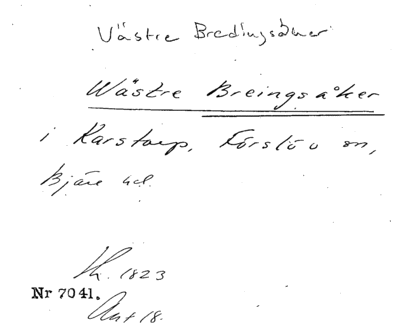 Västre Bredingsåker
Wästre Breingsåker
i Karstorp, Förslöv sn,
Bjäre hd.
Th. 1823
Nr 7041.
Akt 18.